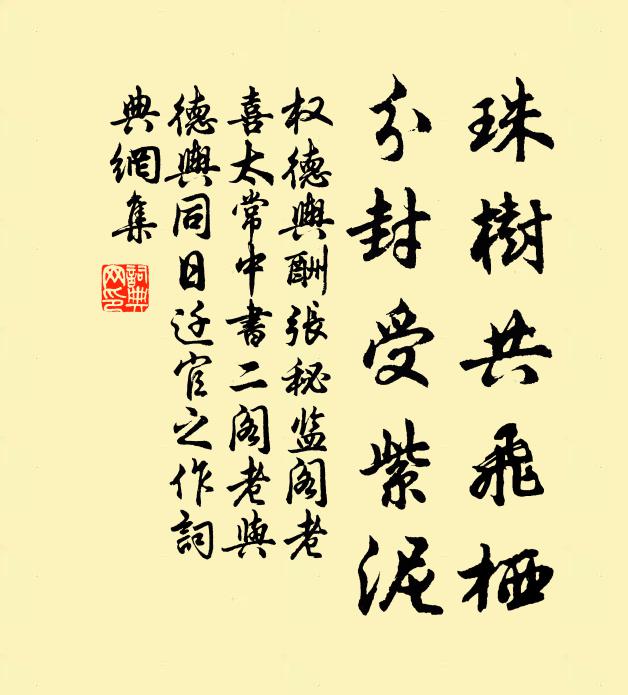 珠樹共飛栖
分封受紫泥
权德輿酬张秘监阁老
喜太常中書二阁老與
德輿同日迁官之作詞
典網集
詞典网印